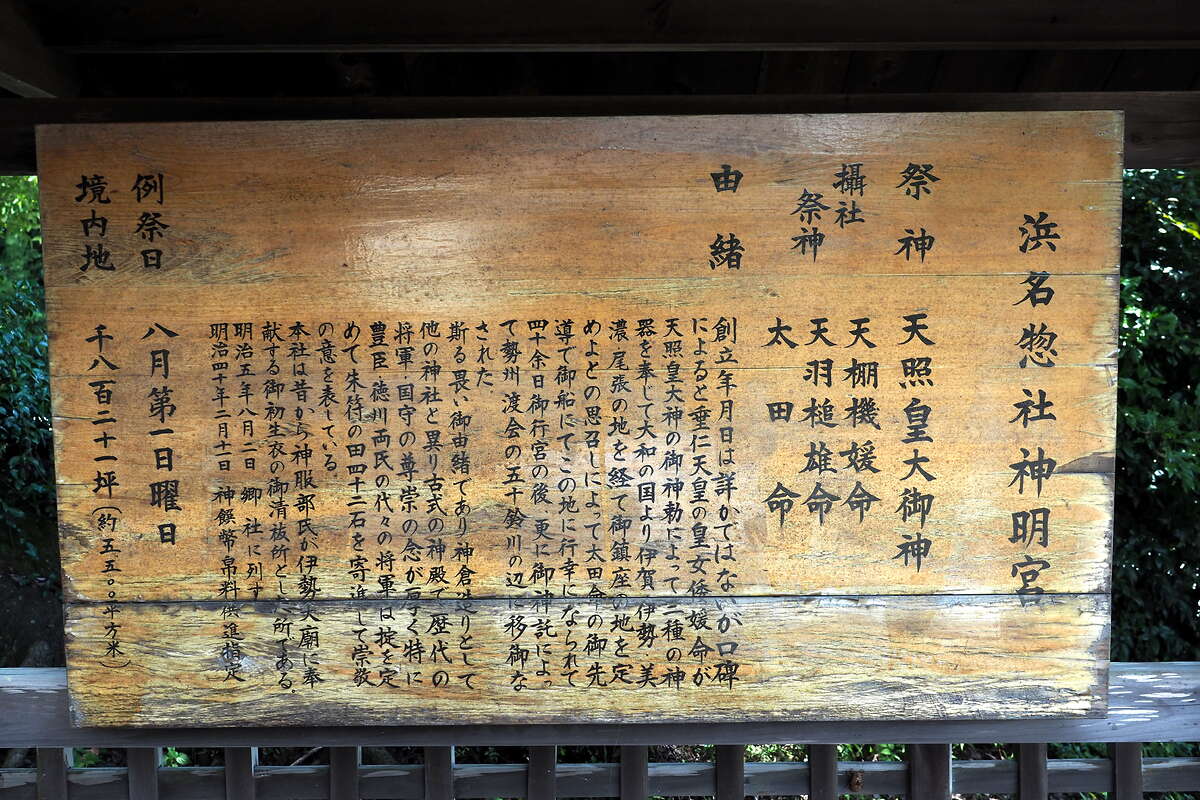 浜名惣社神明宮
祭神　天照皇大御神
攝社　天棚機媛命
祭神　天羽槌雄命
太田命
由緒　創立年月日は詳かではないが口碑
によると垂仁天皇の皇女倭媛命が
天照皇大神の御神勅によって二種の神
器を奉じて大和の国より伊賀 伊勢 美
濃尾張の地を経て御鎮座の地を定
めよとの思召しによって太田命の御先
導で御船にてこの地に行幸になられて
四十余日御行宮の後、更に御神託によっ
て勢州渡会の五十鈴川の辺に移御な
された
斯る畏い御由緒であり神倉造りとして
他の神社と異り古式の神殿で歴代の
将軍 国守の尊崇の念が厚く特に
豊臣 徳川両氏の代々の将軍は掟を定
めて朱符の田四十二石を寄進して崇敬
の意を表している
本社は昔から神服部氏が伊勢大廟に奉
献する御初生衣の御清祓所とし所である
明治五年八月二日 郷社に列す
明治四十年二月十二日 神饌幣帛料供進指定
例祭日　八月第一日曜日
境内地　千八百二十一坪（約五五〇〇平方米）